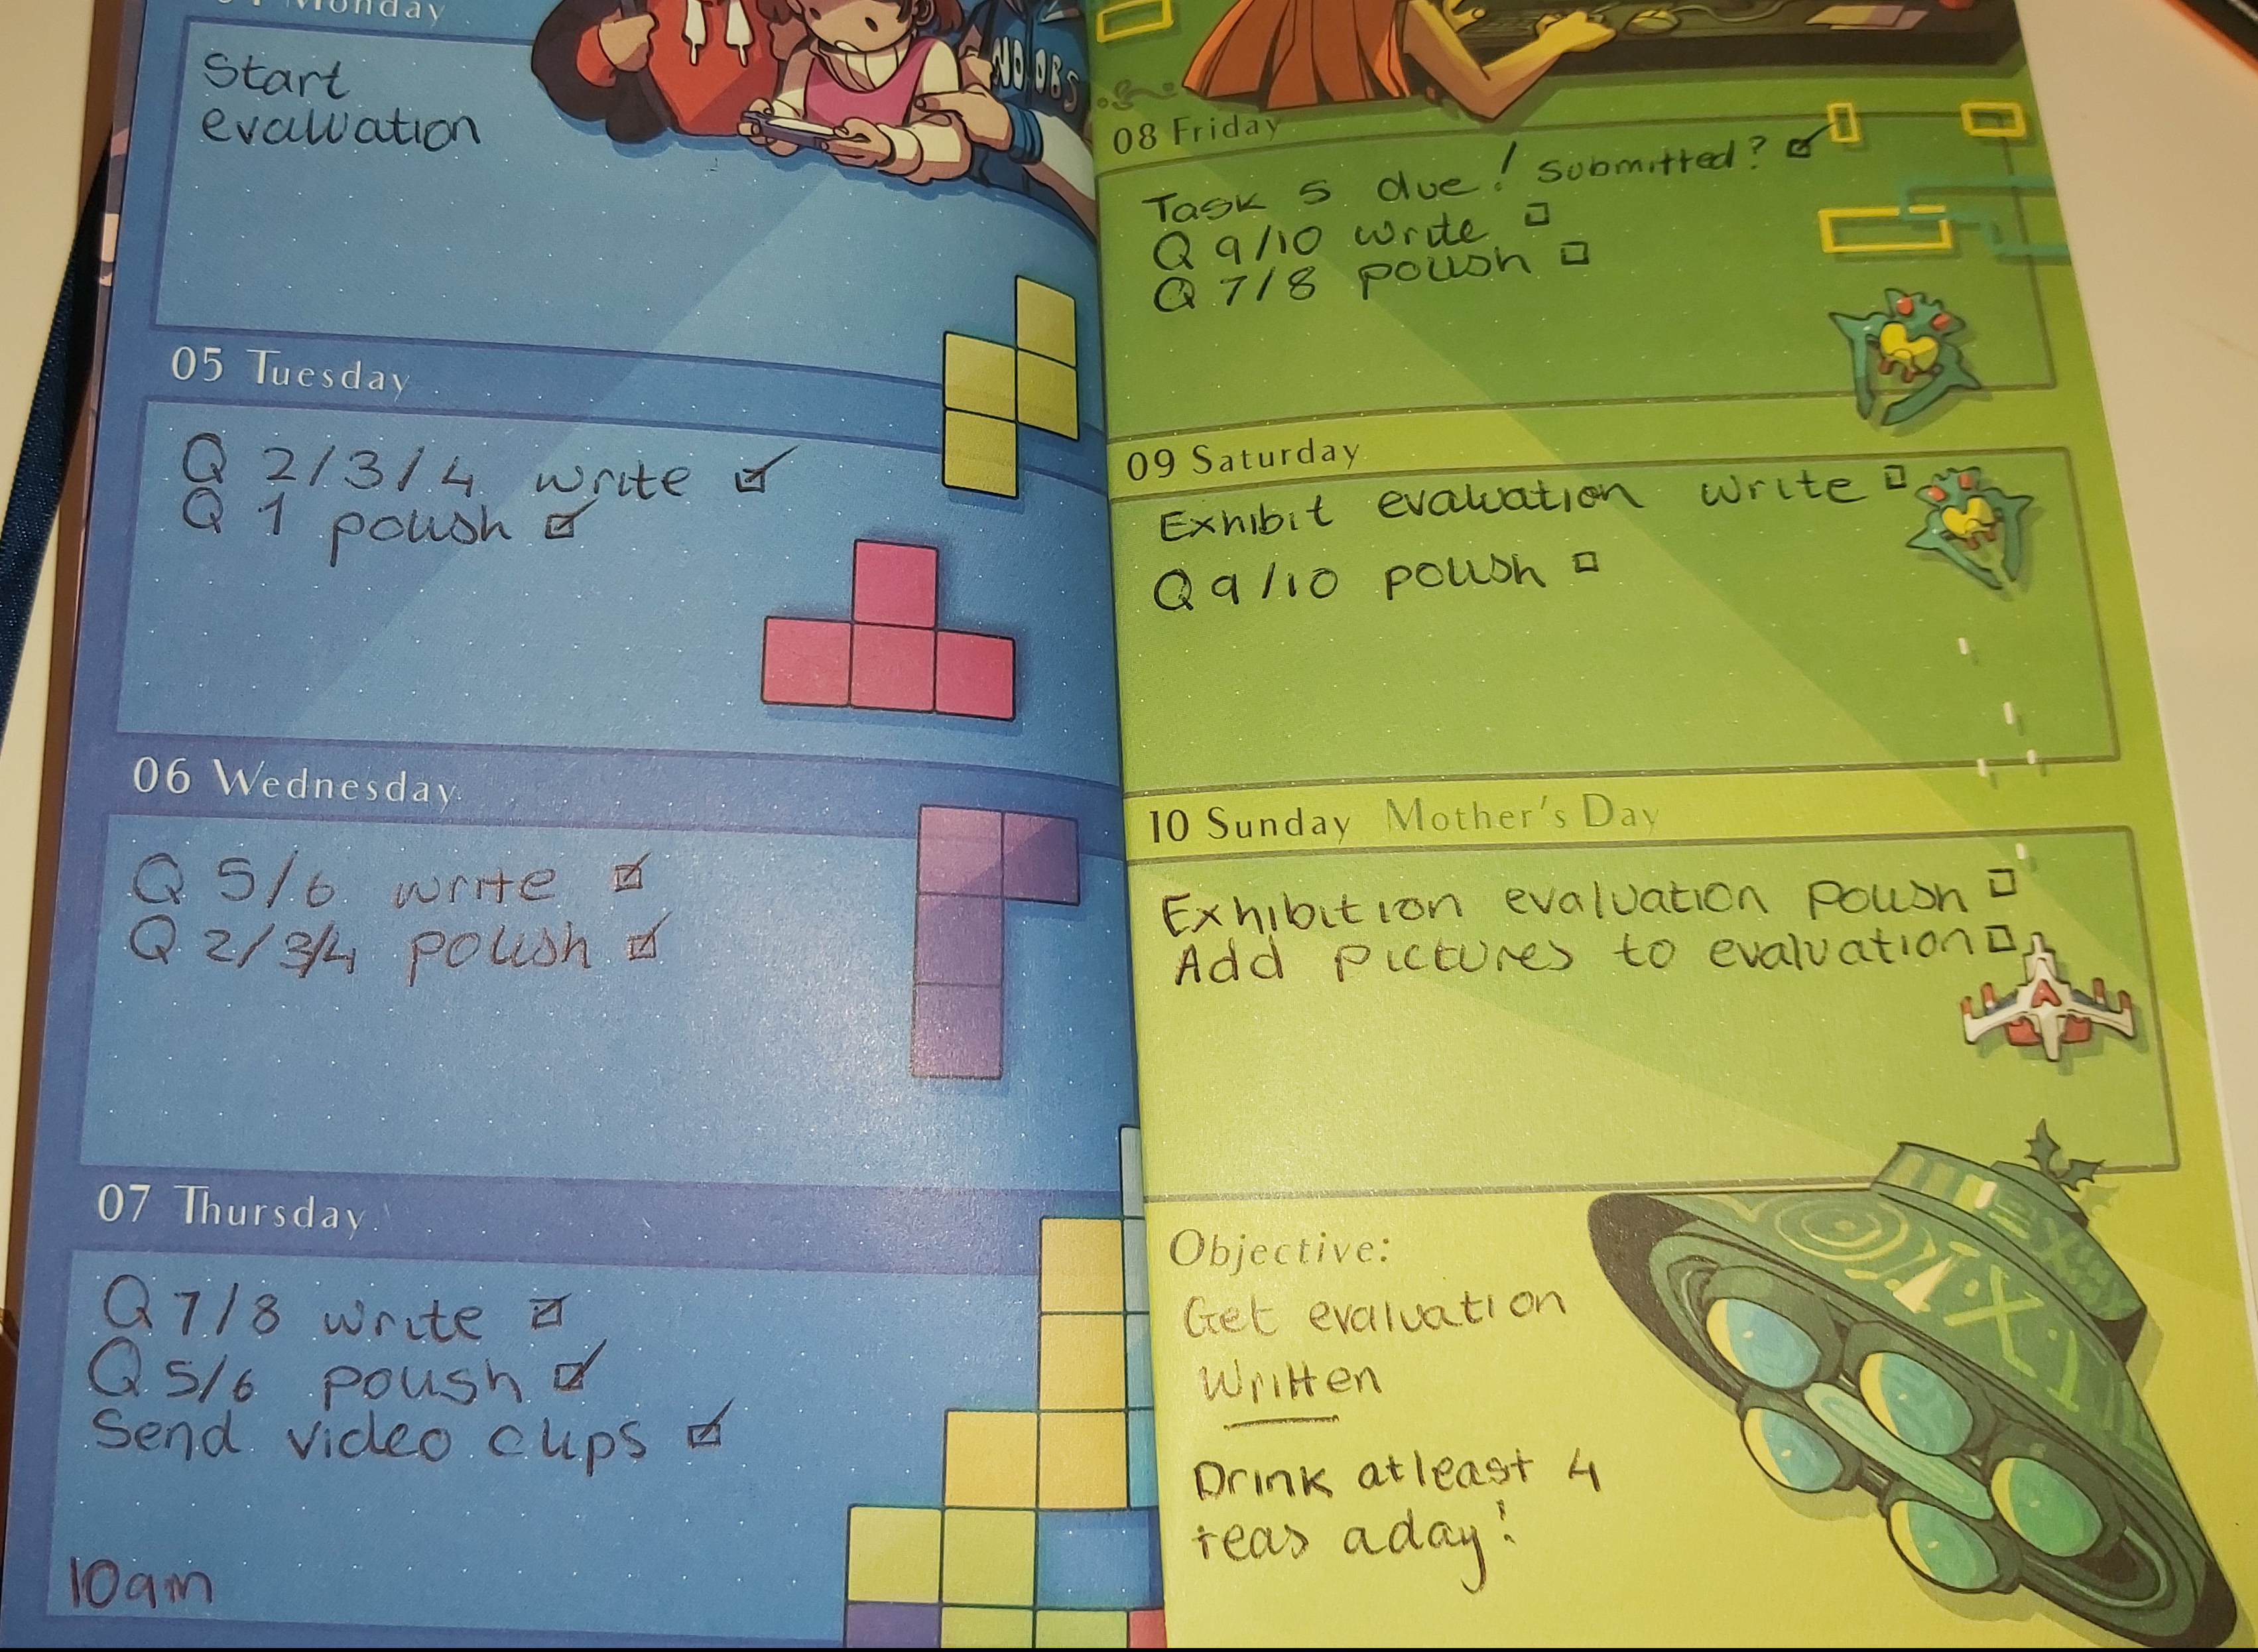 Monday
Start
evaluation
NOOBS
05 Tuesday
Q 2/3/4 write ☑
Q 1 polish ☑
06 Wednesday
Q 5/6 write ☑
Q 2/3/4 polish ☑
07 Thursday
Q 7/8 write ☑
Q 5/6 polish ☑
Send video clips ☑
10am
08 Friday
Task 5 due! Submitted? ☑
Q 9/10 write ☐
Q 7/8 polish ☐
09 Saturday
Exhibit evaluation write ☐
Q 9/10 polish ☐
10 Sunday Mother's Day
Exhibition evaluation polish ☐
Add pictures to evaluation ☐
Objective:
Get evaluation
written
Drink atleast 4
teas a day!